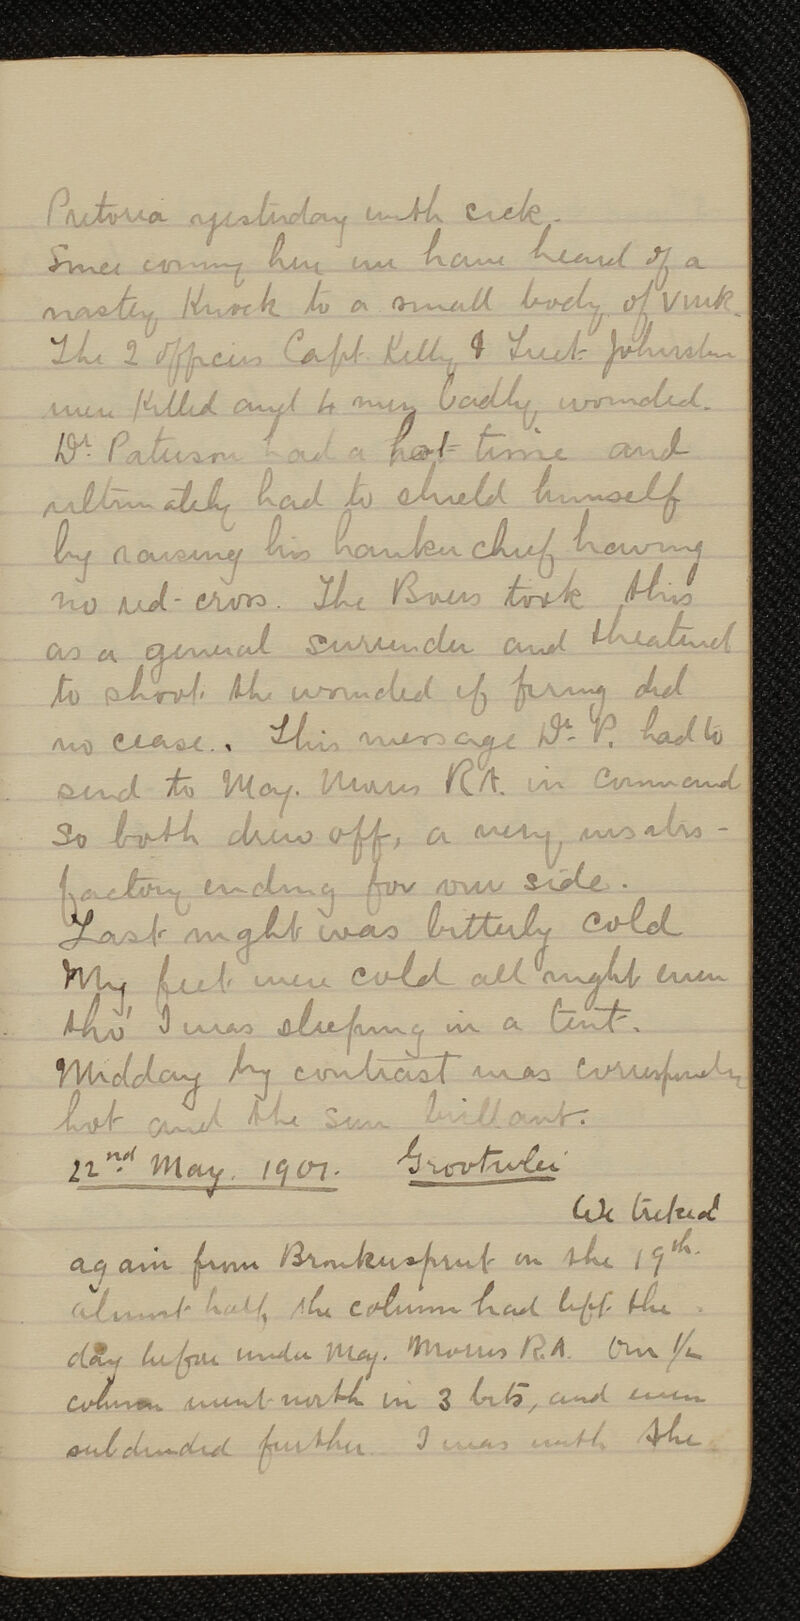 Pretoria yesterday with sick.
Since coming here we have heard of a
nasty Knock to a small body of VMR.
The 2 officers Capt. Kelly & Lieut. Johnston
were Killed and 4 men badly wounded.
Dr. Paterson had a hot time and
ultimately had to shield himself
by raising his hankerchief having
no red-cross. The Boers took this
as a general surrender and theatend
to shoot the wounded if firing did
no cease.. This message Dr. P. had to
send to Maj. Morris R.A. in command
So both drew off, a very unsatis-
factory ending for our side.
Last night was bitterly cold
My feet were cold all night even
tho' I was sleeping in a tent.
Midday by contrast was correspondly
hot and the sun brillant.
22nd May. 1901. Grootvlei
We treked
again from Bronkersprut on the 19th.
almost half the column had left the
day before under Maj. Morris R.A. Our 1/2
column went north in 3 bits, and even
subdivided further. I was with the